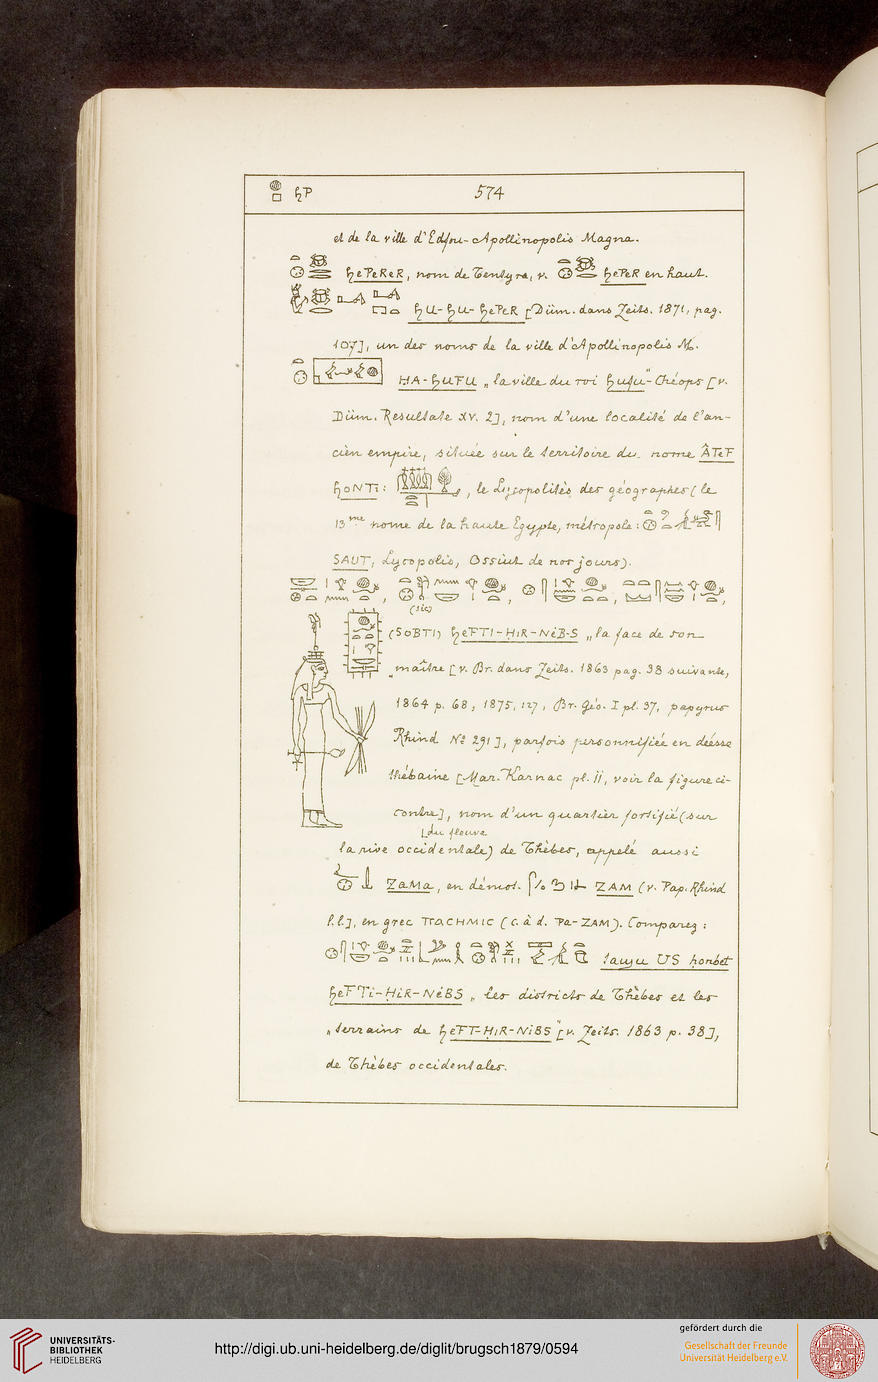 ḫP 574
et de la ville d'Edfou-Apollinopolis Magna.
ḫePeReR, nom de Tentyra, v. ḫePeR en haut.
ḫU-ḫU-ḫePeR [Düm. dans Zeits. 1871, pag.
107], un des noms de la ville d'Apollinopolis M.
HA-ḫUFU „la ville du roi ḫufu"-Chéops [v.
Düm. Resultate XV. 2], nom d'une localité de l'an-
cien empire, située sur le territoire du nome ÂTeF
ḫoNTi: , le Lycopolitès des géographes (le
13me nome de la haute Égypte, métropole:
SAUT, Lycopolis, Ossiut de nos jours).
, , , ,
(sic)
(SOBTI) ḫeFTI-HiR-NéB-S „la face de son
„maître [v. Br. dans Zeits. 1863 pag. 38 suivante,
1864 p. 68, 1875, 127, Br. Géo. I pl. 37, papyrus
Rhind No 291], parfois personnifiée en déesse
thébaine [Mar. Karnac pl. 11, voir la figure ci-
contre], nom d'un quartier fortifié (sur
[du fleuve
la rive occidentale) de Thèbes, appelé aussi
ZaMa, en démot. ZAM (v. Pap. Rhind
l.l.], en grec ΠΑCΗΜΙC (c. à d. Pa-ZAM). Comparez:
US honbet
ḫeFTi-HiR-NéBS „les districts de Thèbes et les
„terrains de ḫeFT-HiR-NiBS" [v. Zeits. 1863 p. 38],
de Thèbes occidentales.
UNIVERSITÄTS-
BIBLIOTHEK
HEIDELBERG
http://digi.ub.uni-heidelberg.de/diglit/brugsch1879/0594
gefördert durch die
Gesellschaft der Freunde
Universität Heidelberg e.V.